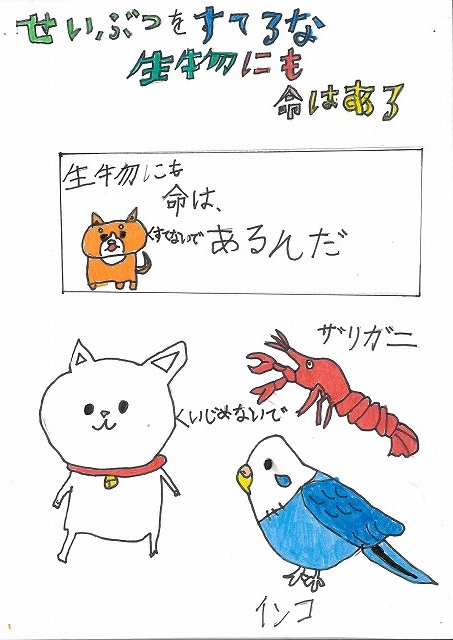 せいぶつをすてるな
生物にも
命はある
生物にも
命は、
くすてないで
あるんだ
ザリガニ
くいじめないで
インコ